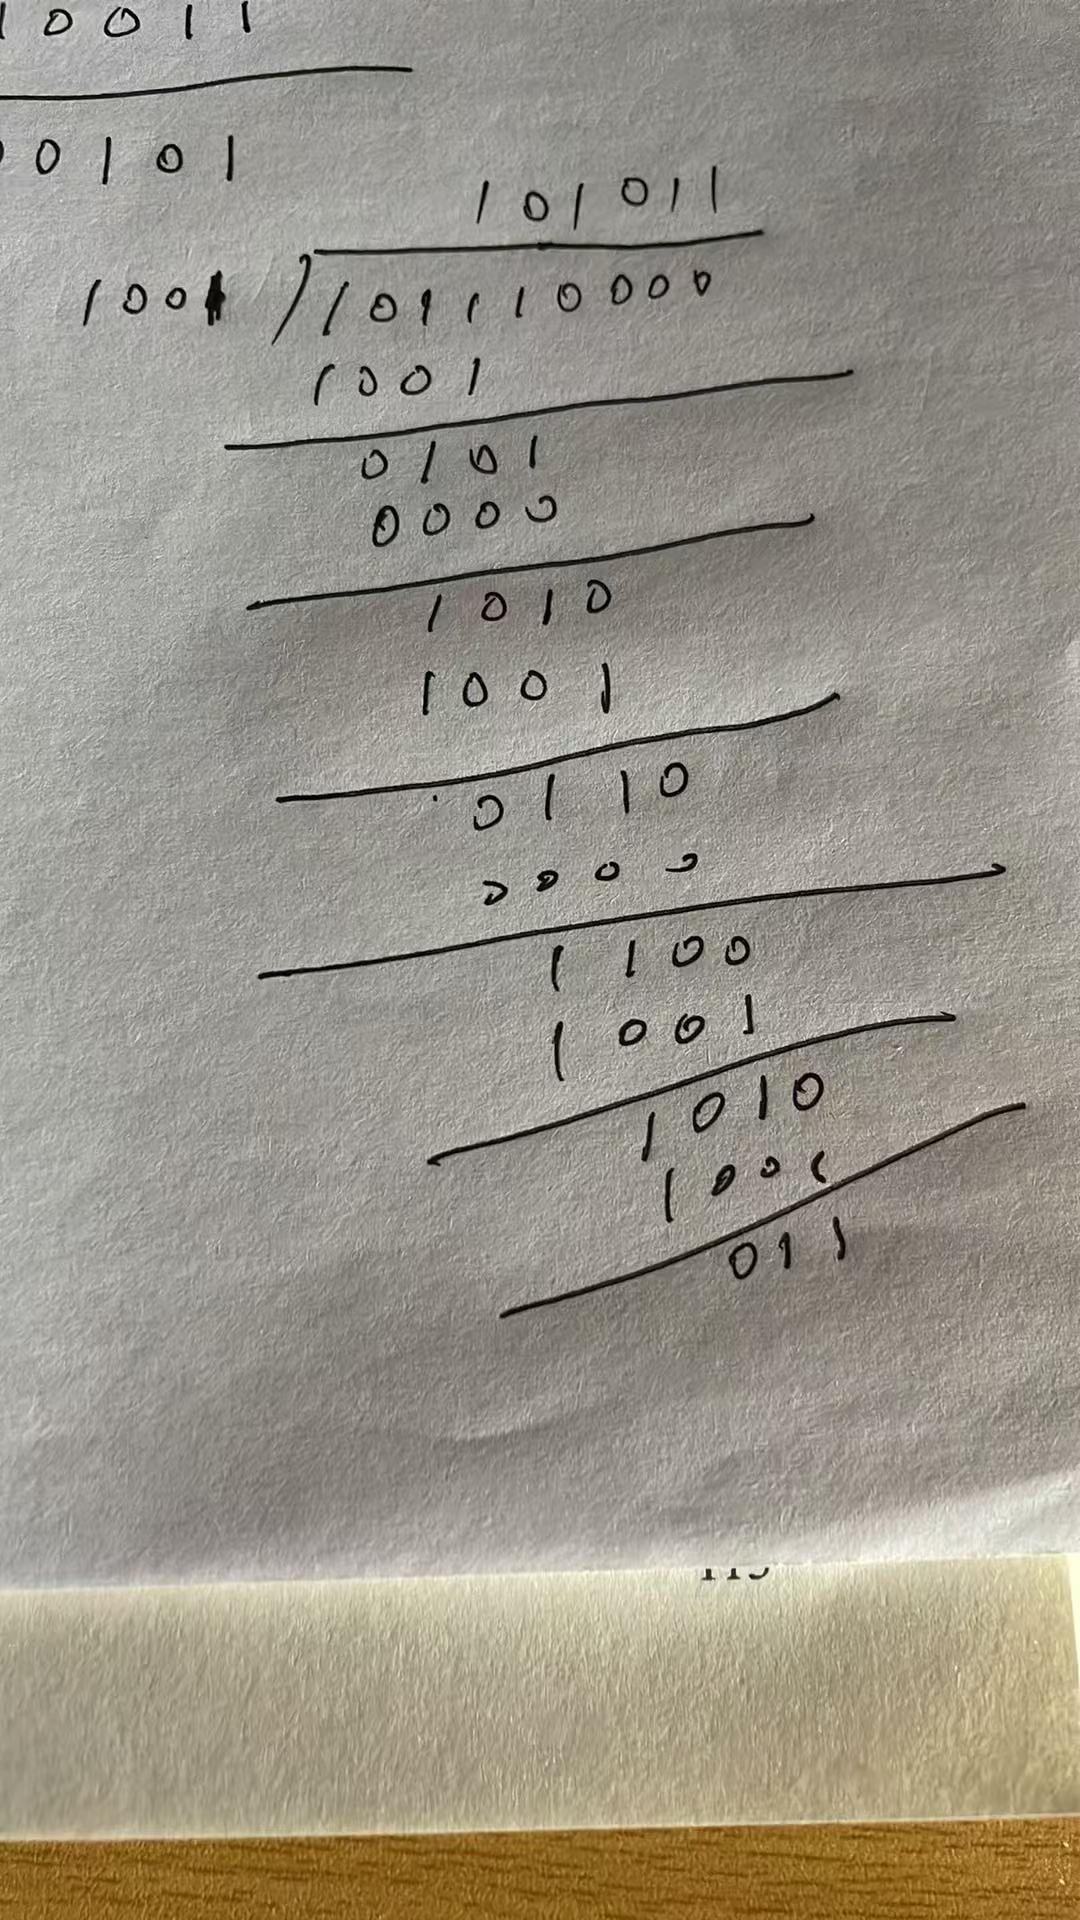 10011
0101
101011
1001 ) 101110000
1001
0101
0000
1010
1001
0110
0000
1100
1001
1010
1001
011